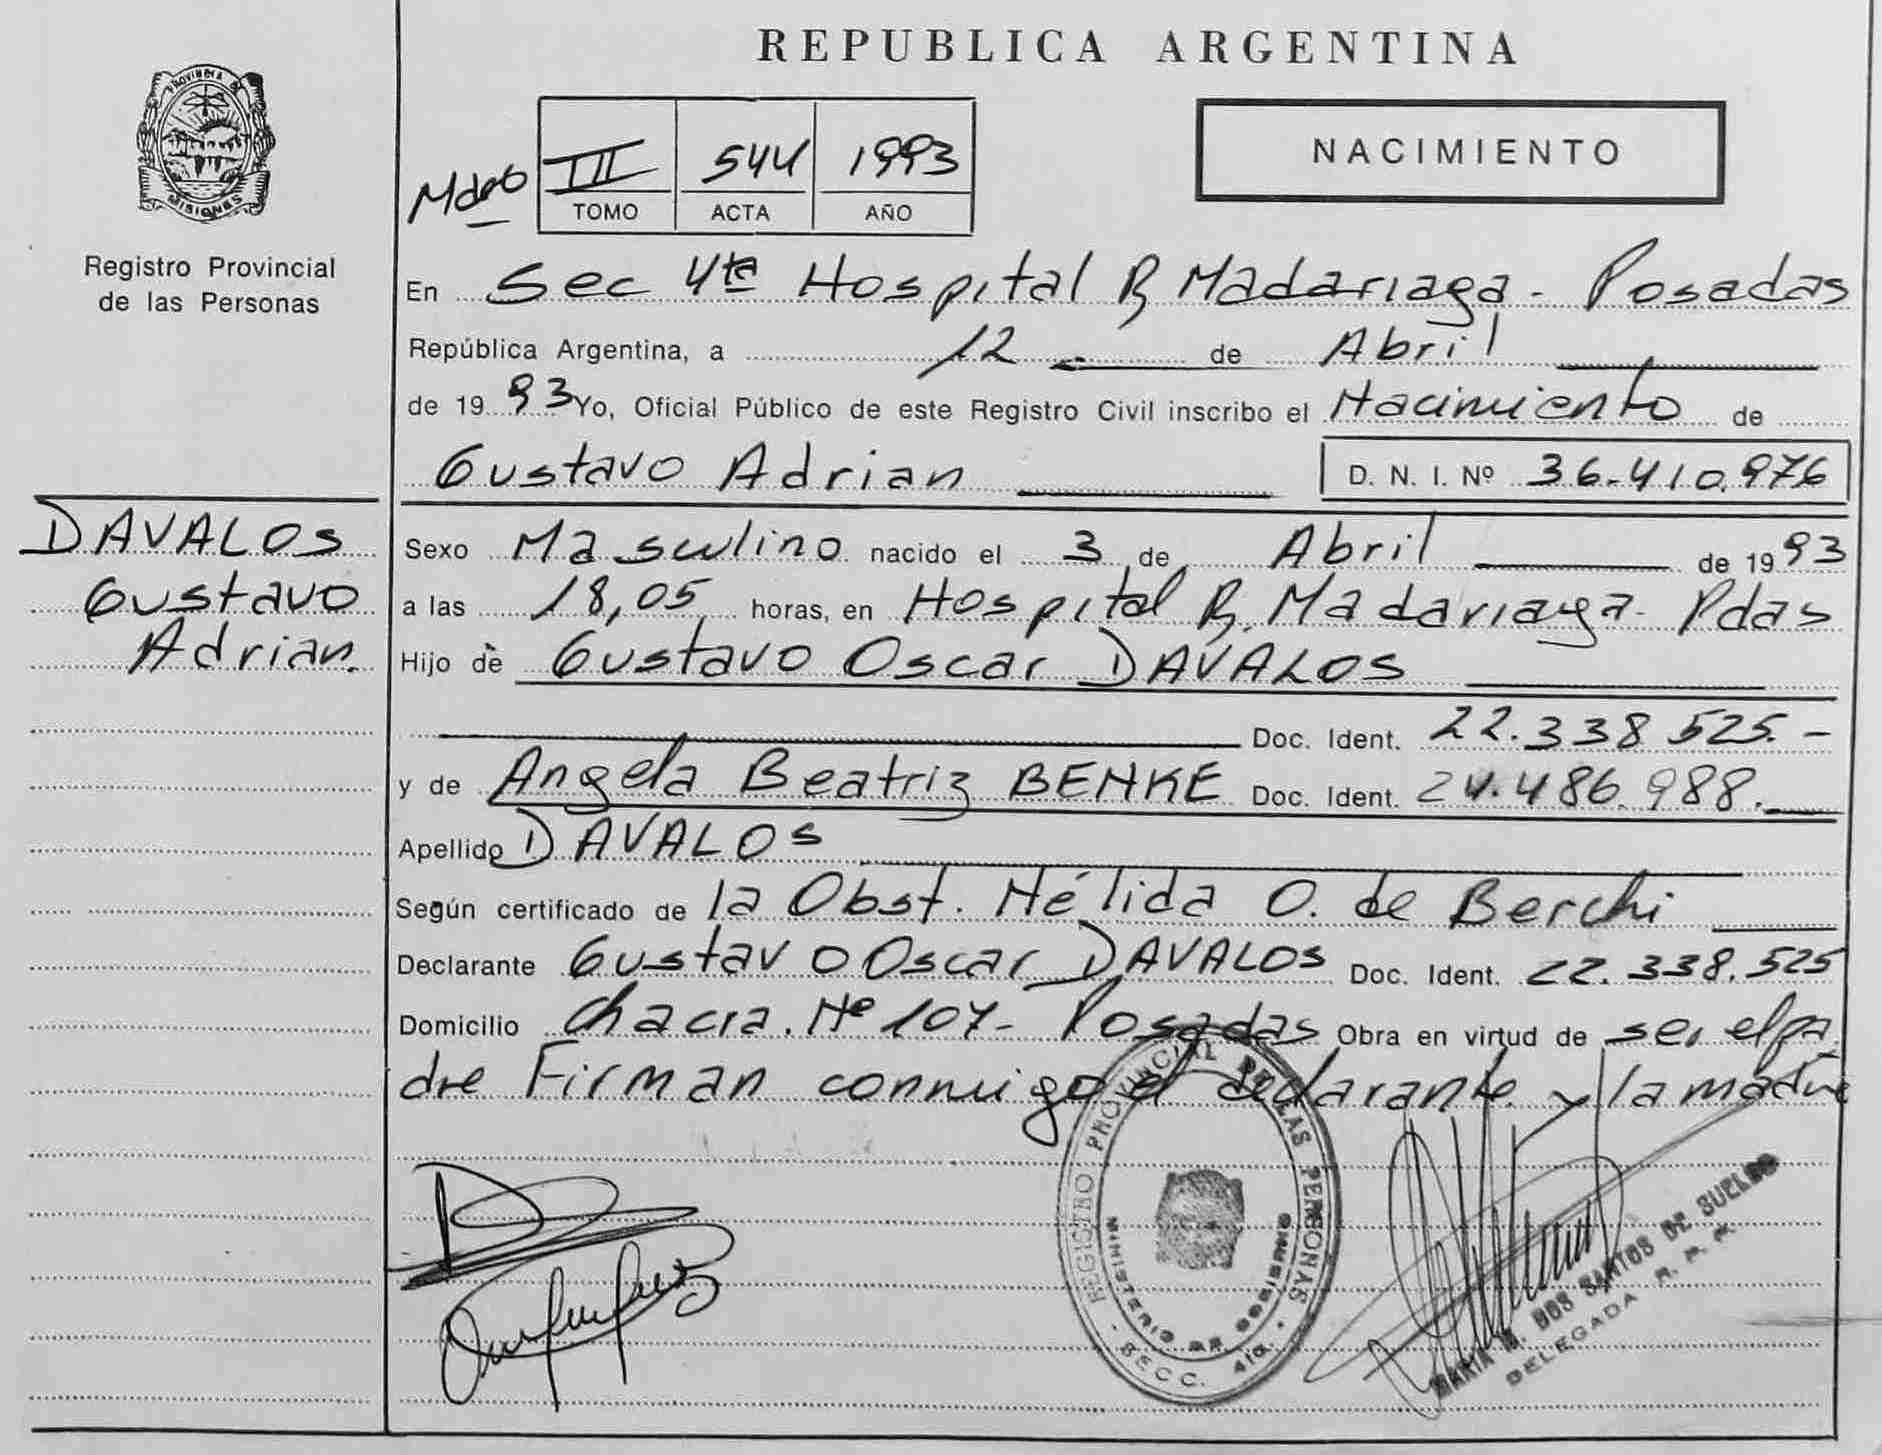 REPUBLICA ARGENTINA
PROVINCIA DE
MISIONES
Registro Provincial
de las Personas
III 544 1993
TOMO ACTA AÑO
NACIMIENTO
En Sec 4ta Hospital R Madariaga - Posadas
República Argentina, a 12 de Abril
de 1993 Yo, Oficial Público de este Registro Civil inscribo el Nacimiento de
Gustavo Adrian D. N. I. Nº 36.410.976
DAVALOS
Gustavo
Adrian.
Sexo Masculino nacido el 3 de Abril de 1993
a las 18,05 horas, en Hospital R. Madariaga - Pdas
Hijo de Gustavo Oscar DAVALOS
Doc. Ident. 22.338 525.-
y de Angela Beatriz BENKE Doc. Ident. 24.486.988.
Apellido DAVALOS
Según certificado de la Obst. Nélida O. de Berchi
Declarante Gustavo Oscar DAVALOS Doc. Ident. 22.338.525
Domicilio Chacra. Nº 107- Posadas Obra en virtud de ser el pa
dre Firman conmigo el declarante y la madre
REGISTRO PROVINCIAL DE LAS PERSONAS
MINISTERIO DE GOBIERNO
SECC. 4ta.
MARIA DOS SANTOS DE SUELDO
DELEGADA